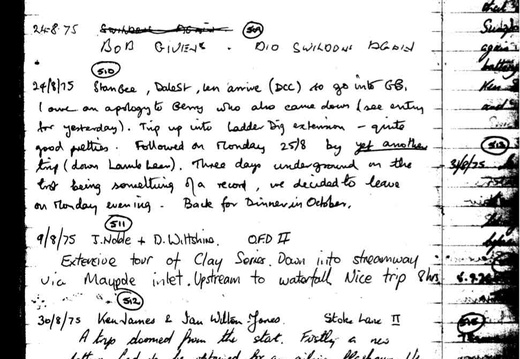 24-8-75 SWILDON AGAIN 509
BOB GIVENS. DIO SWILDON AGAIN
510
24/8/75 Stan Gee, Dale St, Len arrive (DCC) to go into GB.
I owe an apology to Gerry who also came down (see entry
for yesterday). Trip up into Ladder Dig extension - quite
good pretties. Followed on Monday 25/8 by yet another
trip (down Lamb Leer). Three days underground on the
trot being something of a record, we decided to leave
on Monday evening. Back for Dinner in October.
511
9/8/75 J. Noble + D. Wiltshire. OFD II
Extensive tour of Clay Series. Down into streamway
via Maypole inlet. Upstream to waterfall Nice trip 8 hrs
512
30/8/75 Ken James & Ian Jones. Stoke Lane II
A trip doomed from the start. Firstly a new
again
battery
Ken
and
513
31/8/75